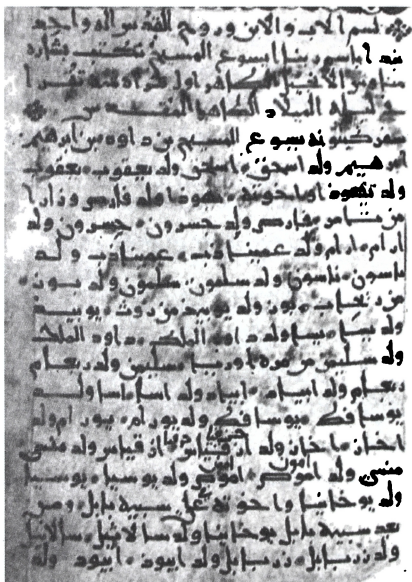 بسم الاب والابن وروح القدس اله واحد
نبدا باسم ربنا ايسوع المسيح نكتب بشاره
الانجيل الطاهر اول قراه منه تقرا
ليله الميلاد الطاهر المقدس
يسوع المسيح بن داود بن ابرهيم
ابرهيم ولد اسحق اسحق ولد يعقوب يعقوب
ولد يهوذا واخوته يهوذا ولد فارص وزارا
من تامر فارص ولد حسرون حسرون ولد
ارام ارام ولد عميناداب عميناداب ولد
ناسون ناسون ولد سلمون سلمون ولد بوز
من رحاب بوز ولد يوبيد من روث يوبيد
ولد يسا يسا ولد داود الملك داود الملك
ولد سليمن من مره اوريا سليمن ولد ربعام
ربعام ولد ابيا ابيا ولد اسا اسا ولد
يوسافط يوسافط ولد يورام يورام ولد
ولد ازقياس ازقياس ولد منسى
منسى ولد اموص اموص ولد يوسيا يوسيا
ولد يوخانيا واخوته سبيه بابل ومن
بعد سبيه بابل يوخانيا ولد سلاثيل سلاثيل
ولد زربابل زربابل ولد ابيود ابيود ولد